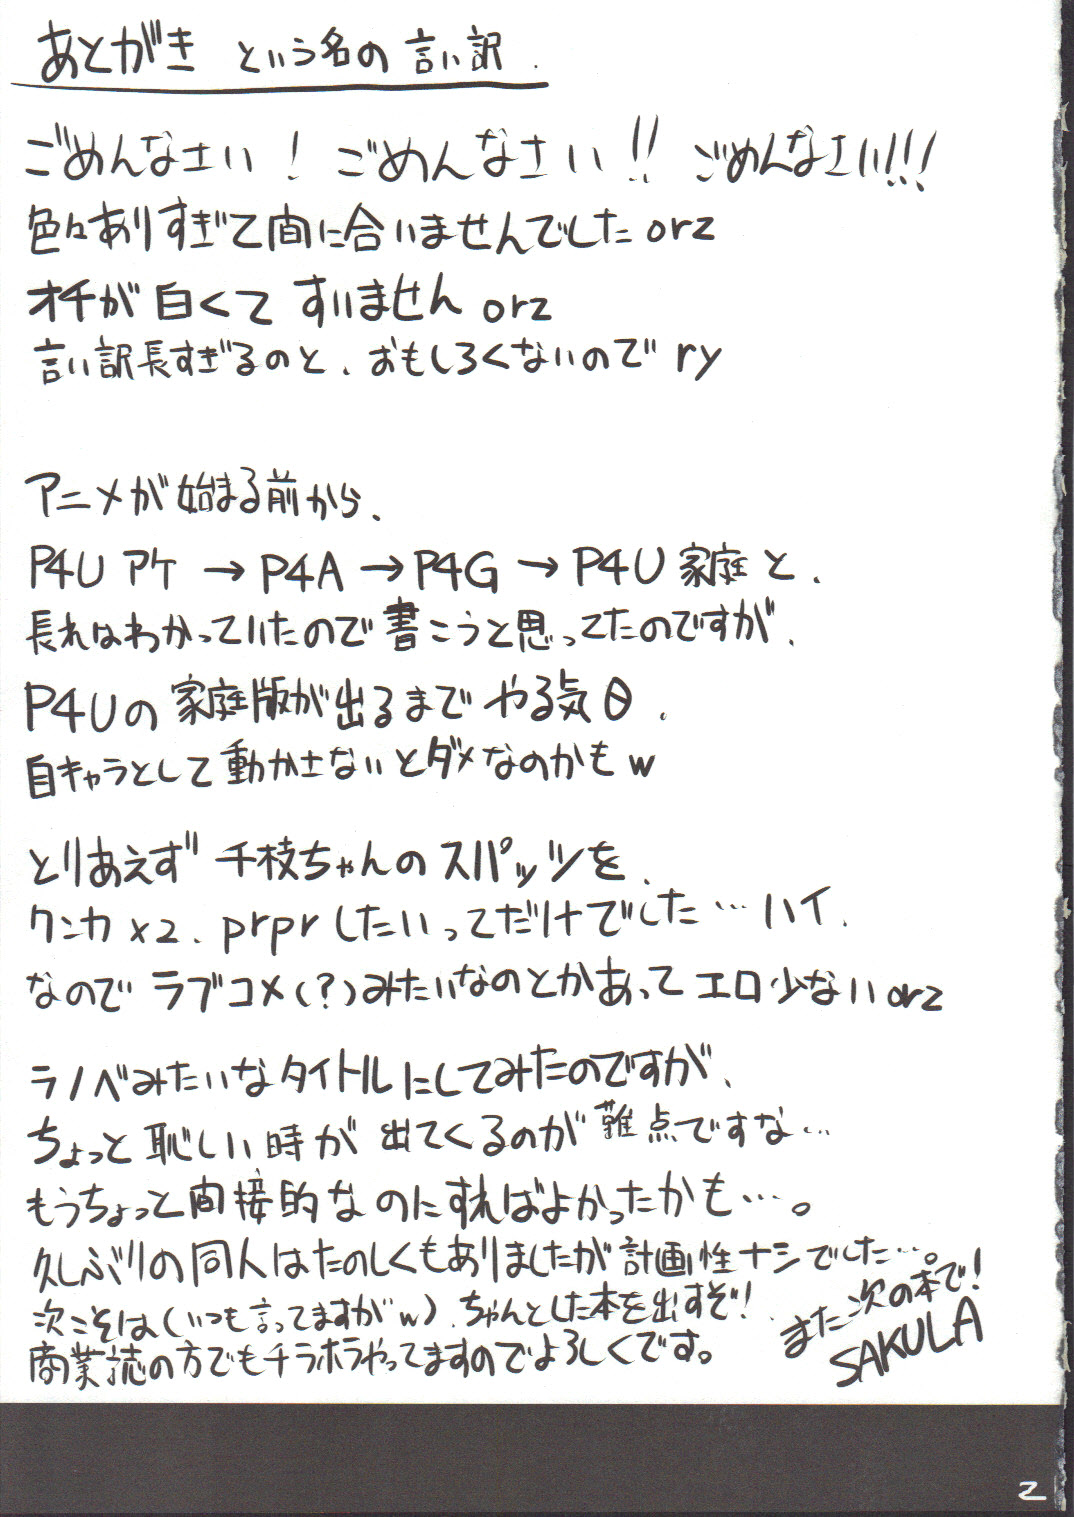 あとがき という名の言い訳.
ごめんなさい! ごめんなさい!! ごめんなさい!!!
色々ありすぎて間に合いませんでした orz
オチが白くて すいません orz
言い訳長すぎるのと、おもしろくないので ry
アニメが始まる前から、
P4U アケ → P4A → P4G → P4U 家庭 と、
長れはわかっていたので書こうと思ってたのですが、
P4Uの家庭版が出るまでやる気θ.
自キャラとして動かさないとダメなのかもw
とりあえず 千枝ちゃんのスパッツを、
クンカ×2、prprしたいってだけでした…ハイ.
なので ラブコメ(?)みたいなのとかあって エロ少ない orz
ラノベみたいなタイトルにしてみたのですが、
ちょっと恥しい時が出てくるのが難点ですな…
もうちょっと間接的なのにすればよかったかも…。
久しぶりの同人はたのしくもありましたが計画性ナシでした…。
次こそは(いつも言ってますがw)、ちゃんとした本を出すぞ!
商業誌の方でもチラホラやってますのでよろしくです。
また次の本で!
SAKULA
2